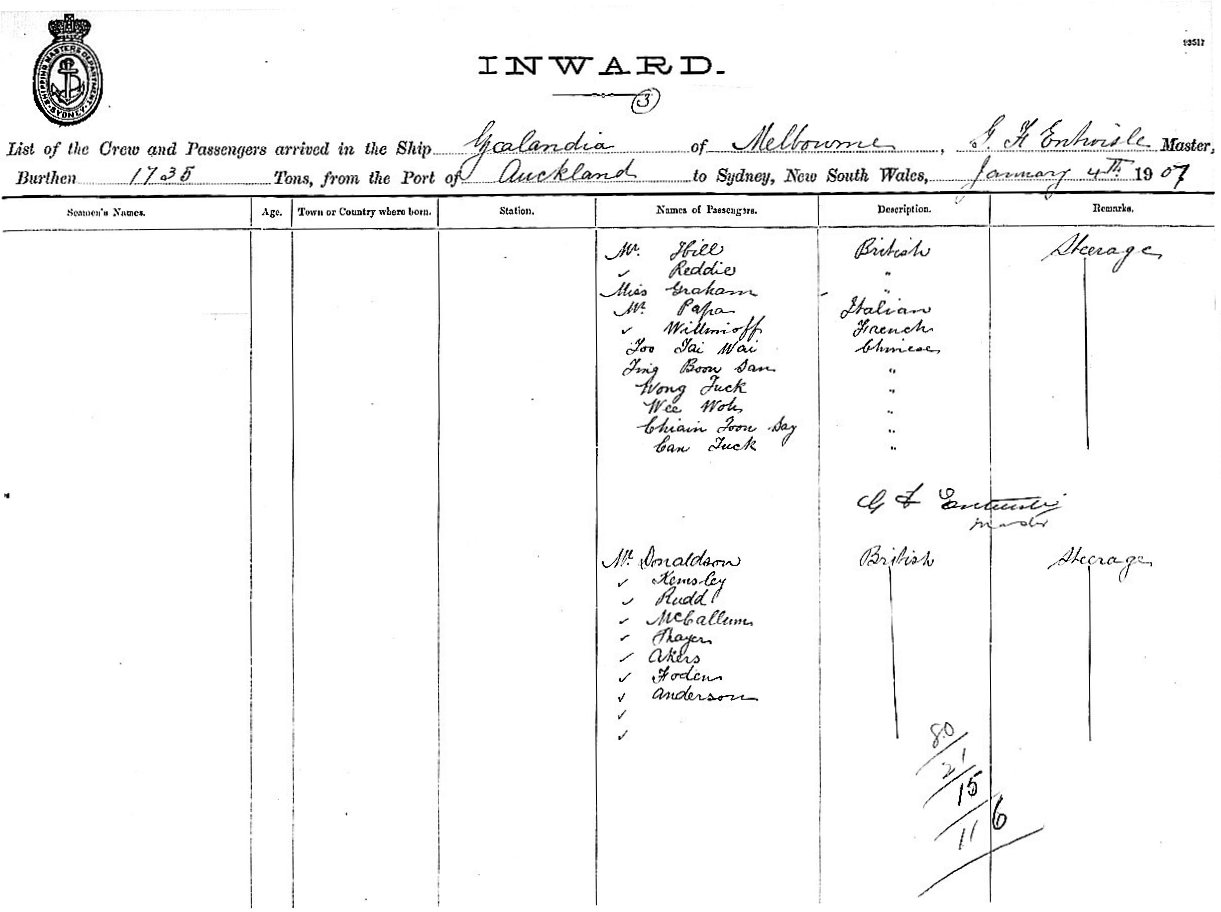 SHIPPING MASTERS DEPARTMENT SYDNEY
23517
INWARD.
3
List of the Crew and Passengers arrived in the Ship Zealandia of Melbourne, G F Entwisle Master,
Burthen 1735 Tons, from the Port of Auckland to Sydney, New South Wales, January 4TH 1907
Seamen's Names. Age. Town or Country where born. Station. Names of Passengers. Description. Remarks.
Mr. Hill British Steerage
✓ Reddie "
Miss Graham "
Mr. Papa Italian
✓ Willmioff French
Foo Tai Wai Chinese
Ting Boon San "
Wong Tuck "
Wee Woh "
Chiain Toon Say "
Can Tuck "
G F Entwisle
Master
Mr. Donaldson British Steerage
✓ Kemsley
✓ Rudd
✓ McCallum
✓ Thayer
✓ Akers
✓ Foden
✓ Anderson
✓
✓
80
21
15
116